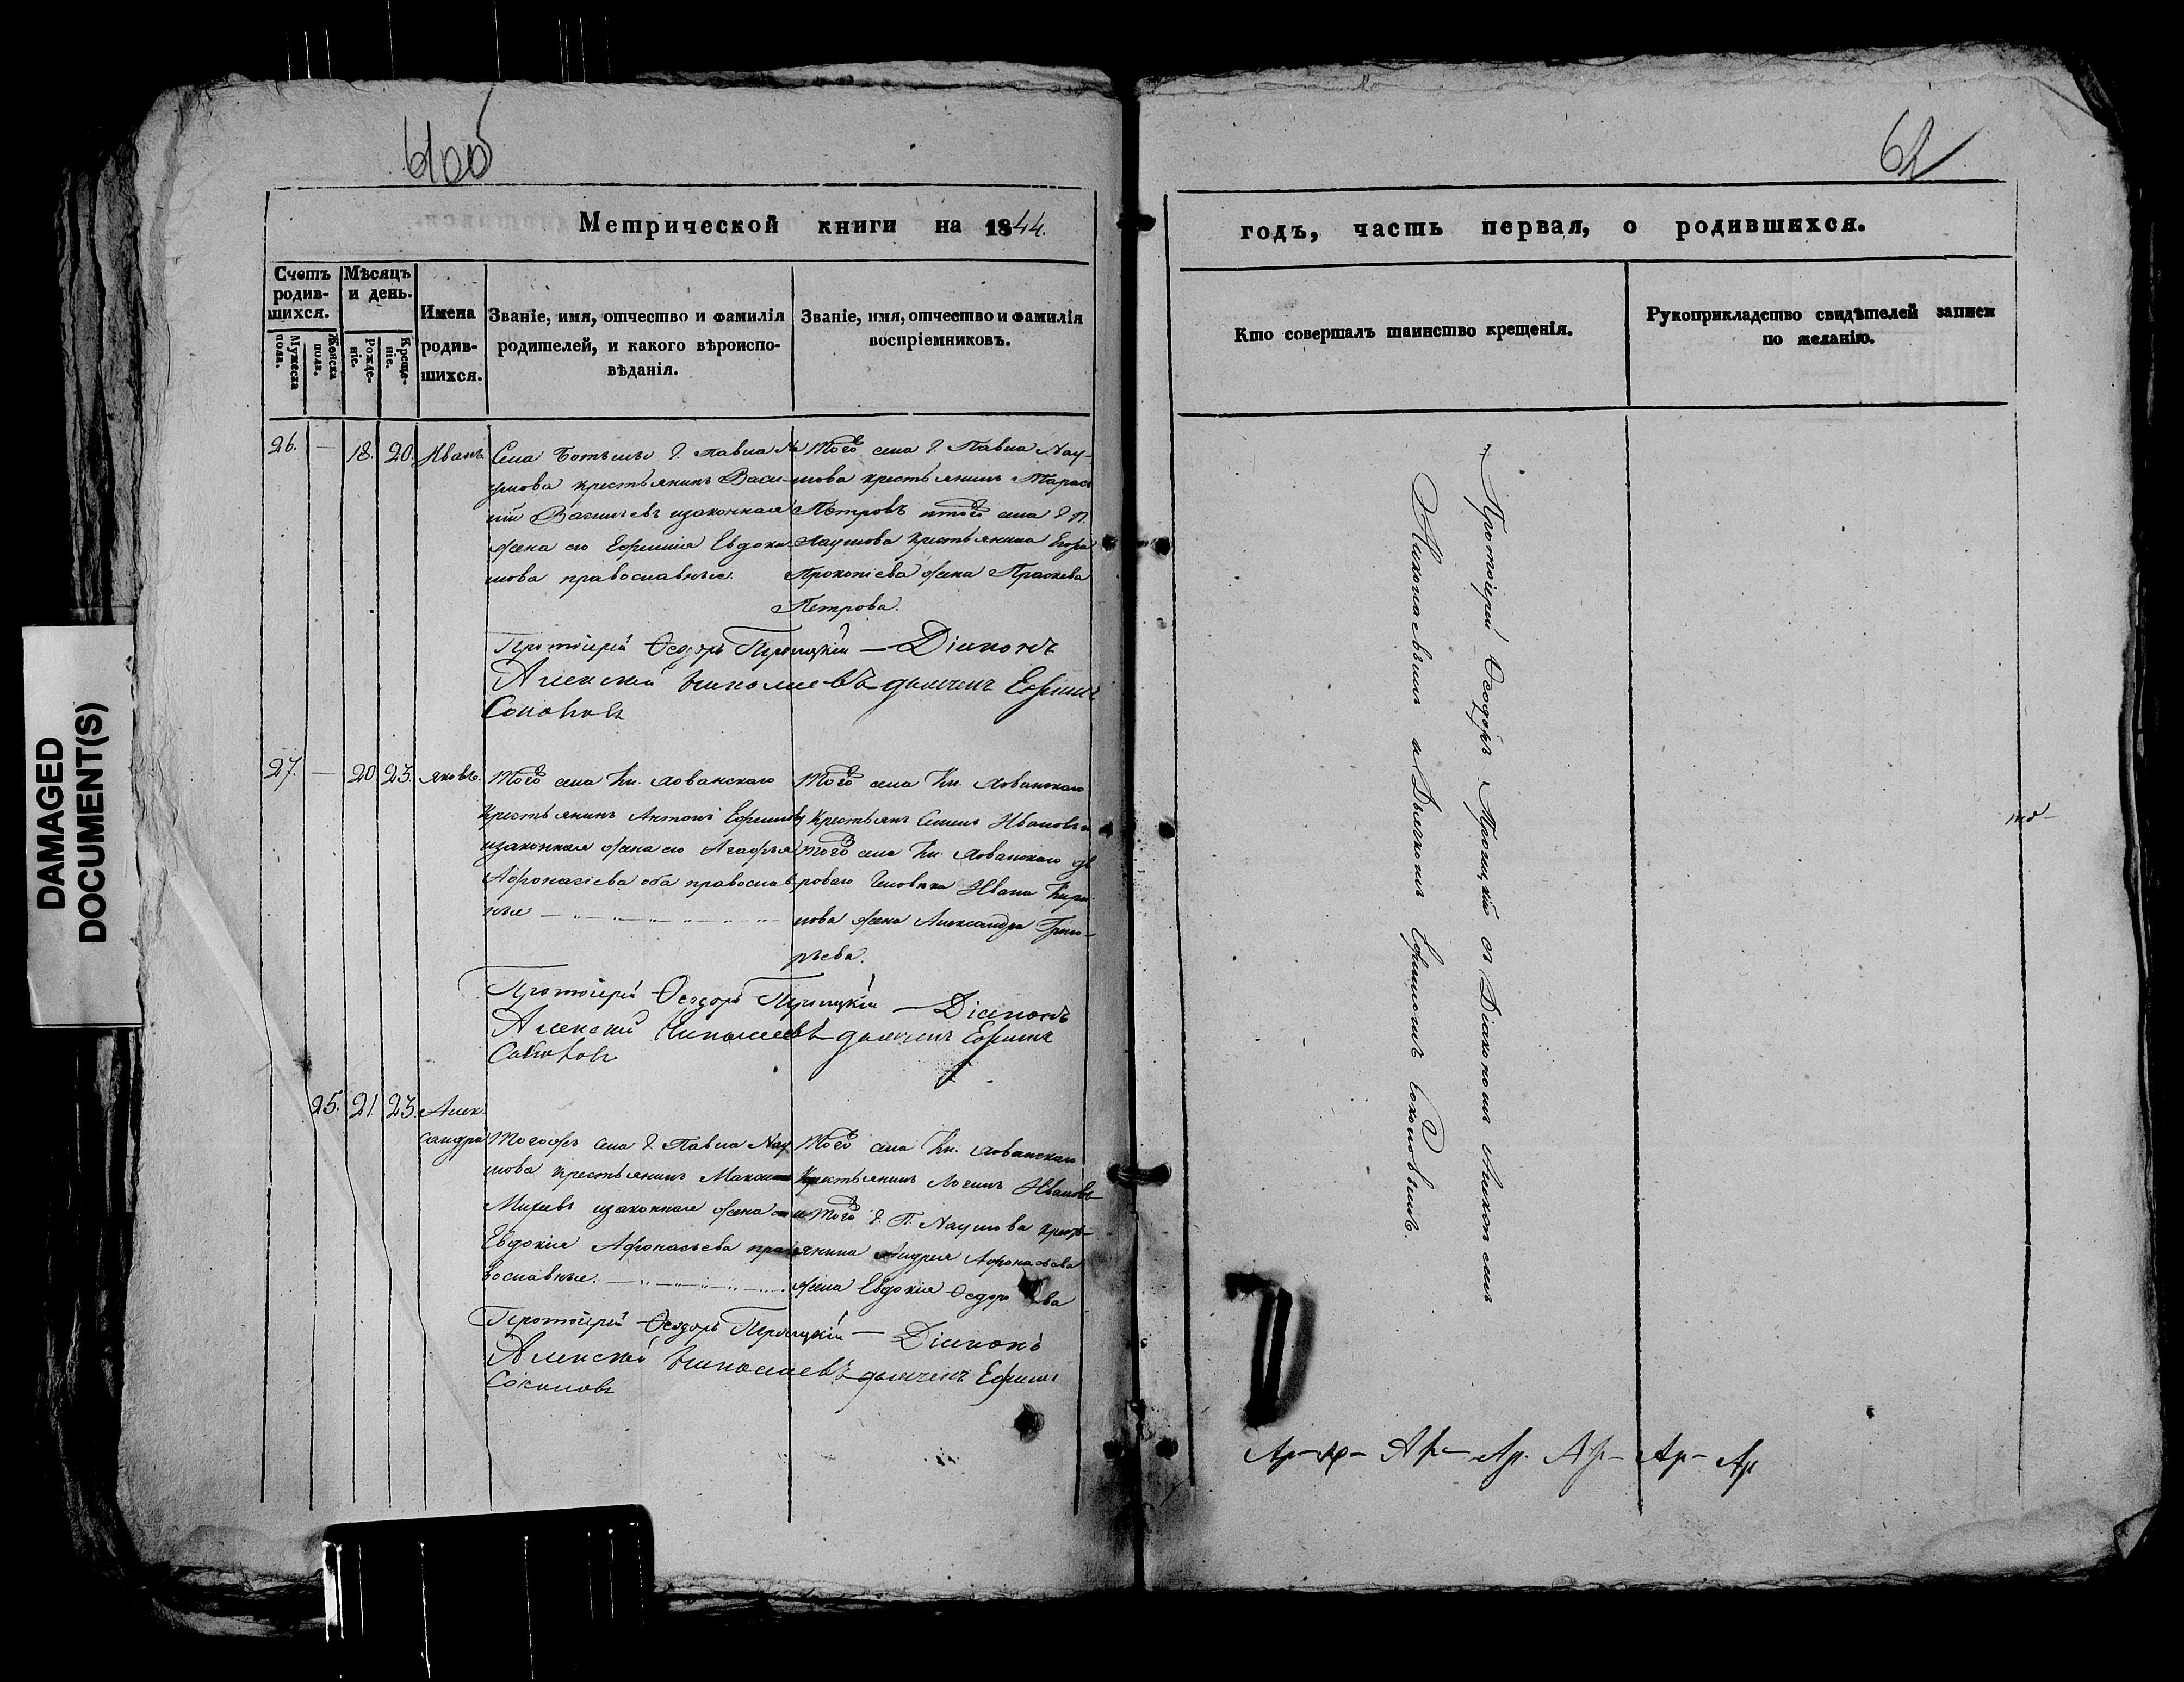 61об
Метрической книги на 1844.
Счетъ родив-шихся.
Мужеска пола.
Женска пола.
Мѣсяцъ и день.
Рожде-ніе.
Креще-ніе.
Имена родив-шихся.
Званіе, имя, отчество и фамилія
родителей, и какого вѣроиспо-
вѣданія.
Званіе, имя, отчество и фамилія
воспріемниковъ.
26. — 18. 20. Иванъ
Села г. Павла На
умова крестьянинъ Васи
лій и законная
жена его Евфимія Евдоки
мова православные.
Того села г. Павла Нау-
мова крестьянинъ Тарасъ
Петровъ и того села г. П.
Наумова крестьянина Егора
Прокопіева жена Праскева
Петрова.
Протоіерей Ѳеодоръ Троицкій — Діаконъ
Алексей Николаевъ дьячекъ Ефимъ
Соколовъ
27. — 20 23. Яковъ.
Того села Кн. Хованскаго
крестьянинъ Антонъ Ефимовъ
и законная жена его Агафья
Афонасіева оба православ
ные
Того села Кн. Хованскаго
крестьянъ Семенъ Ивановъ и
того села Кн. Хованскаго дв
роваго человѣка Ивана Кири
лова жена Александра Григо-
рьева.
Протоіерей Ѳеодоръ Троицкій — Діаконъ
Алексей Николаевъ дьячекъ Ефимъ
Соколовъ
25. 21. 23. Алек
сандра
Тогожъ села г. Павла Нау
мова крестьянинъ Максимъ
Михеевъ и законная жена его
Евдокія Афонасьева пра
вославные.
Того села Кн. Хованскаго
крестьянинъ Логинъ Ивановъ
и того г. П. Наумова кресть-
янина Андрея Афонасьева
жена Евдокія Ѳедорова
Протоіерей Ѳеодоръ Троицкій — Діаконъ
Алексей Николаевъ дьячекъ Ефимъ
Соколовъ
62
годъ, часть первая, о родившихся.
Кто совершалъ таинство крещенія.
Рукоприкладство свидѣтелей записи
по желанію.
Протоіерей Ѳеодоръ Троицкій съ Діакономъ Алексеемъ
Николаевымъ и Дьячкомъ Ефимомъ Соколовымъ.
Ар- Ар- Ар- Ар. Ар- Ар- Ар
DAMAGED
DOCUMENT(S)